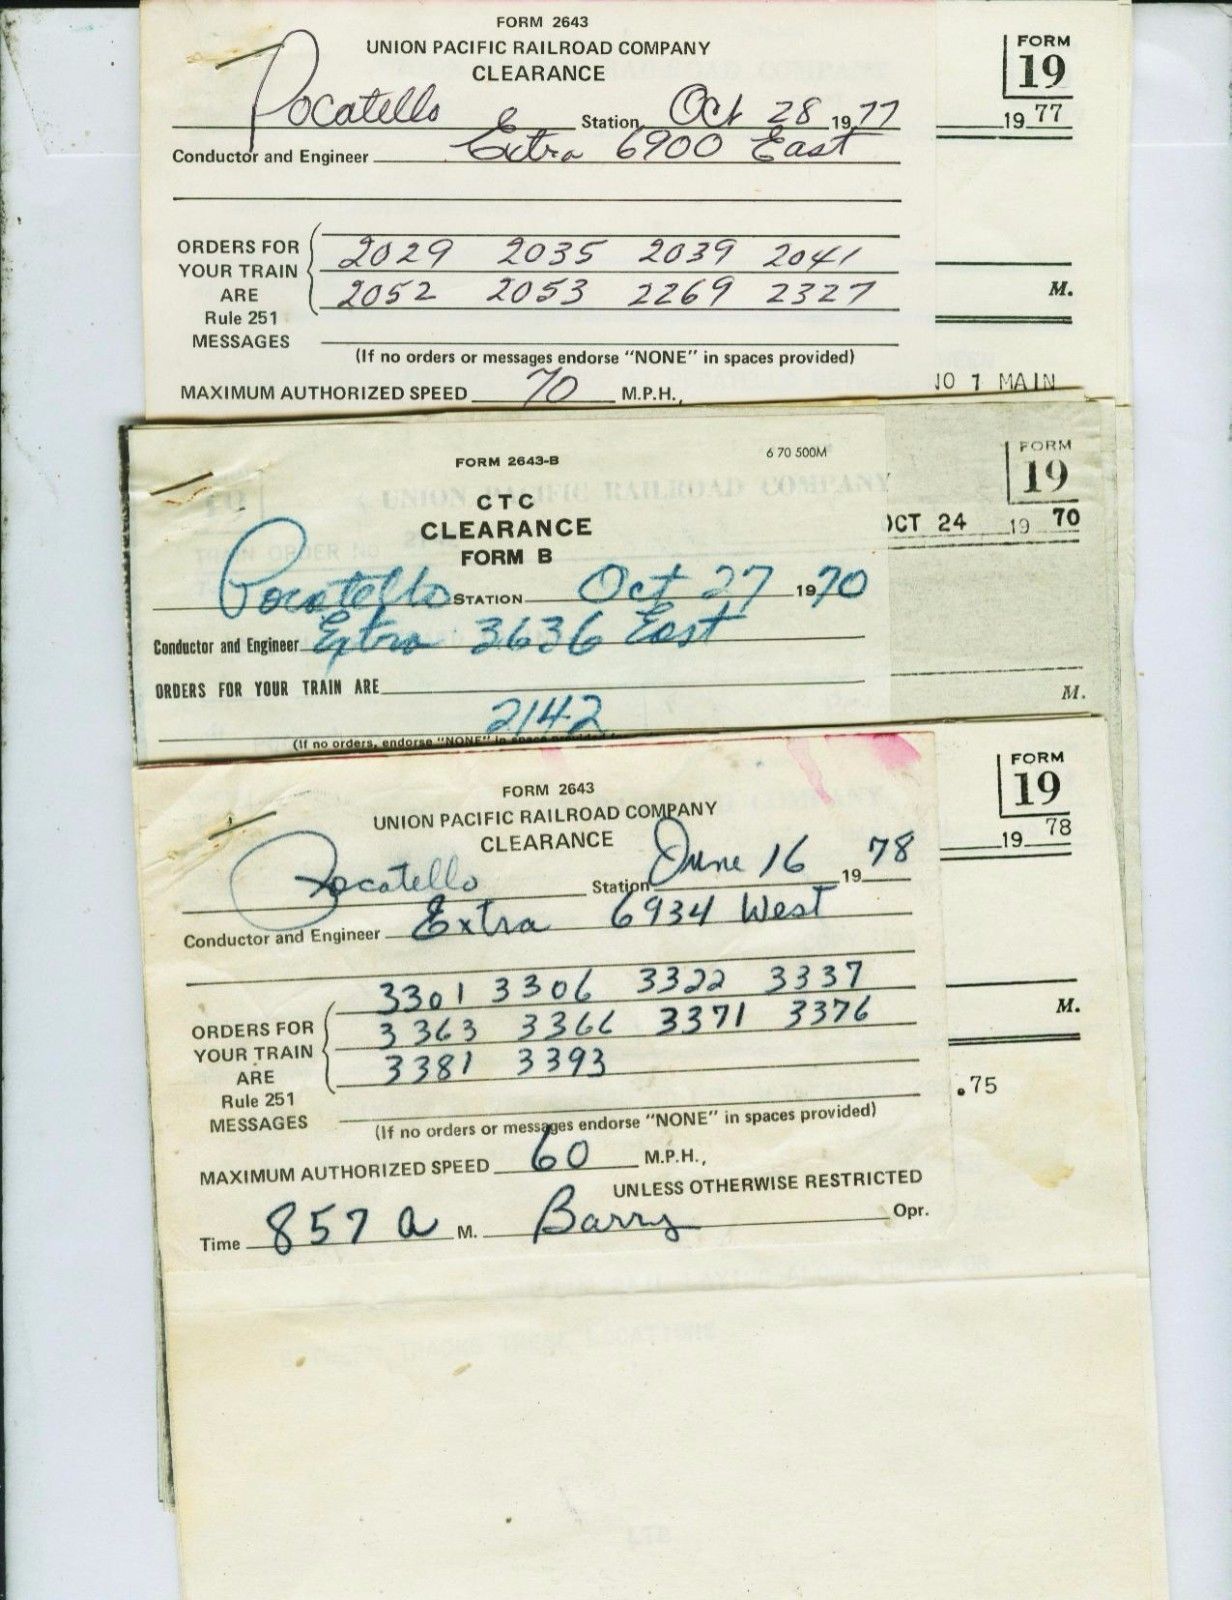 FORM 2643
UNION PACIFIC RAILROAD COMPANY
CLEARANCE
Pocatello Station, Oct 28 1977
Conductor and Engineer Extra 6900 East
ORDERS FOR YOUR TRAIN ARE
2029 2035 2039 2041
2052 2053 2269 2327
Rule 251
MESSAGES
(If no orders or messages endorse "NONE" in spaces provided)
MAXIMUM AUTHORIZED SPEED 70 M.P.H.,
FORM
19
1977
M.
NO 1 MAIN
FORM 2643-B
6 70 500M
CTC
CLEARANCE
FORM B
Pocatello STATION Oct 27 1970
Conductor and Engineer Extra 3636 East
ORDERS FOR YOUR TRAIN ARE
2142
(If no orders, endorse "NONE" in space provided
FORM
19
OCT 24 1970
M.
UNION PACIFIC RAILROAD COMPANY
TRAIN ORDER NO
FORM 2643
UNION PACIFIC RAILROAD COMPANY
CLEARANCE
Pocatello Station June 16 1978
Conductor and Engineer Extra 6934 West
3301 3306 3322 3337
ORDERS FOR YOUR TRAIN ARE
3363 3366 3371 3376
3381 3393
Rule 251
MESSAGES
(If no orders or messages endorse "NONE" in spaces provided)
MAXIMUM AUTHORIZED SPEED 60 M.P.H.,
UNLESS OTHERWISE RESTRICTED
Time 857 a M. Barry Opr.
FORM
19
1978
M.
.75